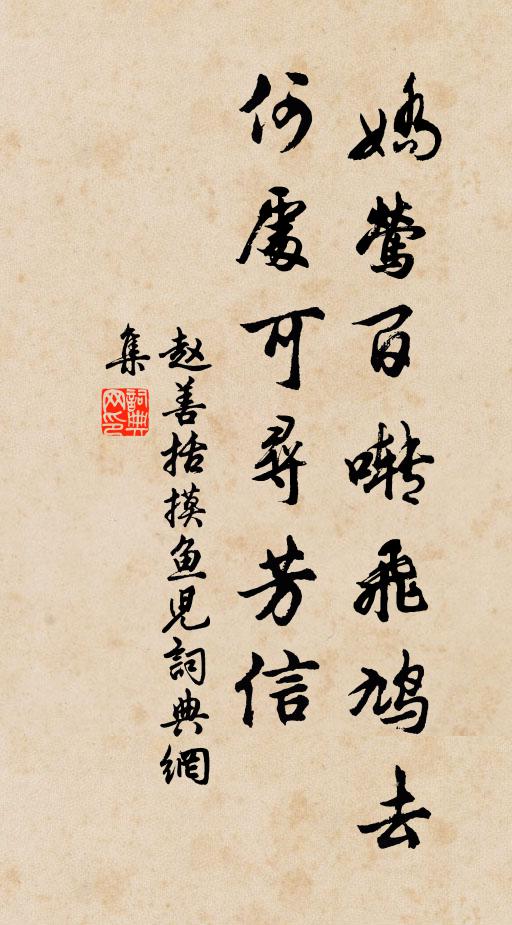 嬌鶯百囀飛鴆去
何處可尋芳信
赵善括摸鱼児詞典網
集
詞典網印